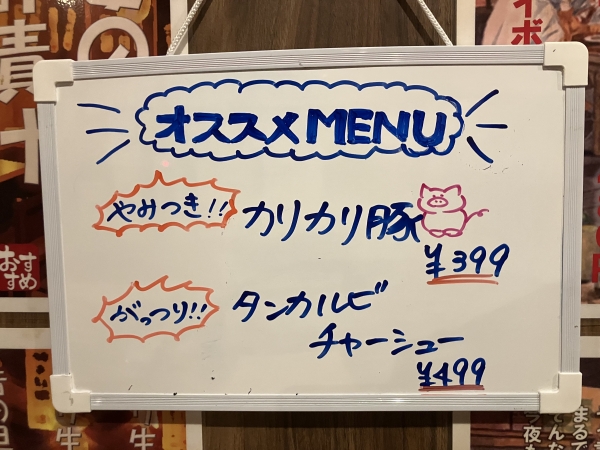 オススメMENU
やみつき!!
カリカリ豚
¥399
がっつり!!
タンカルビ
チャーシュー
¥499
おすすめ